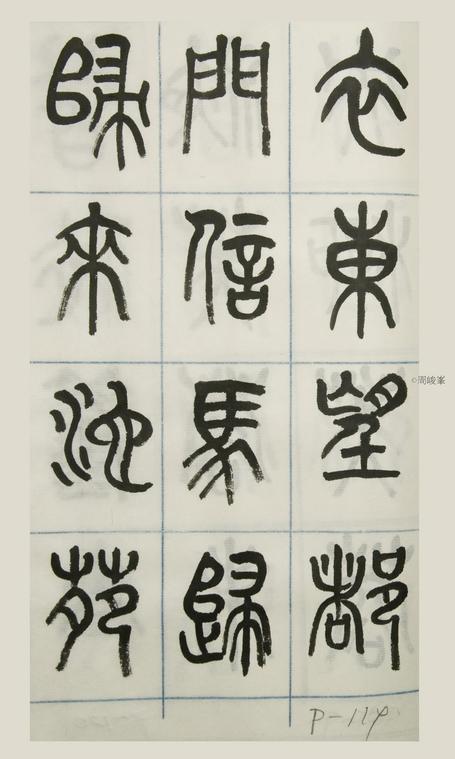 衣東望都
門信馬歸
歸来池苑
P-114
©周峻峯